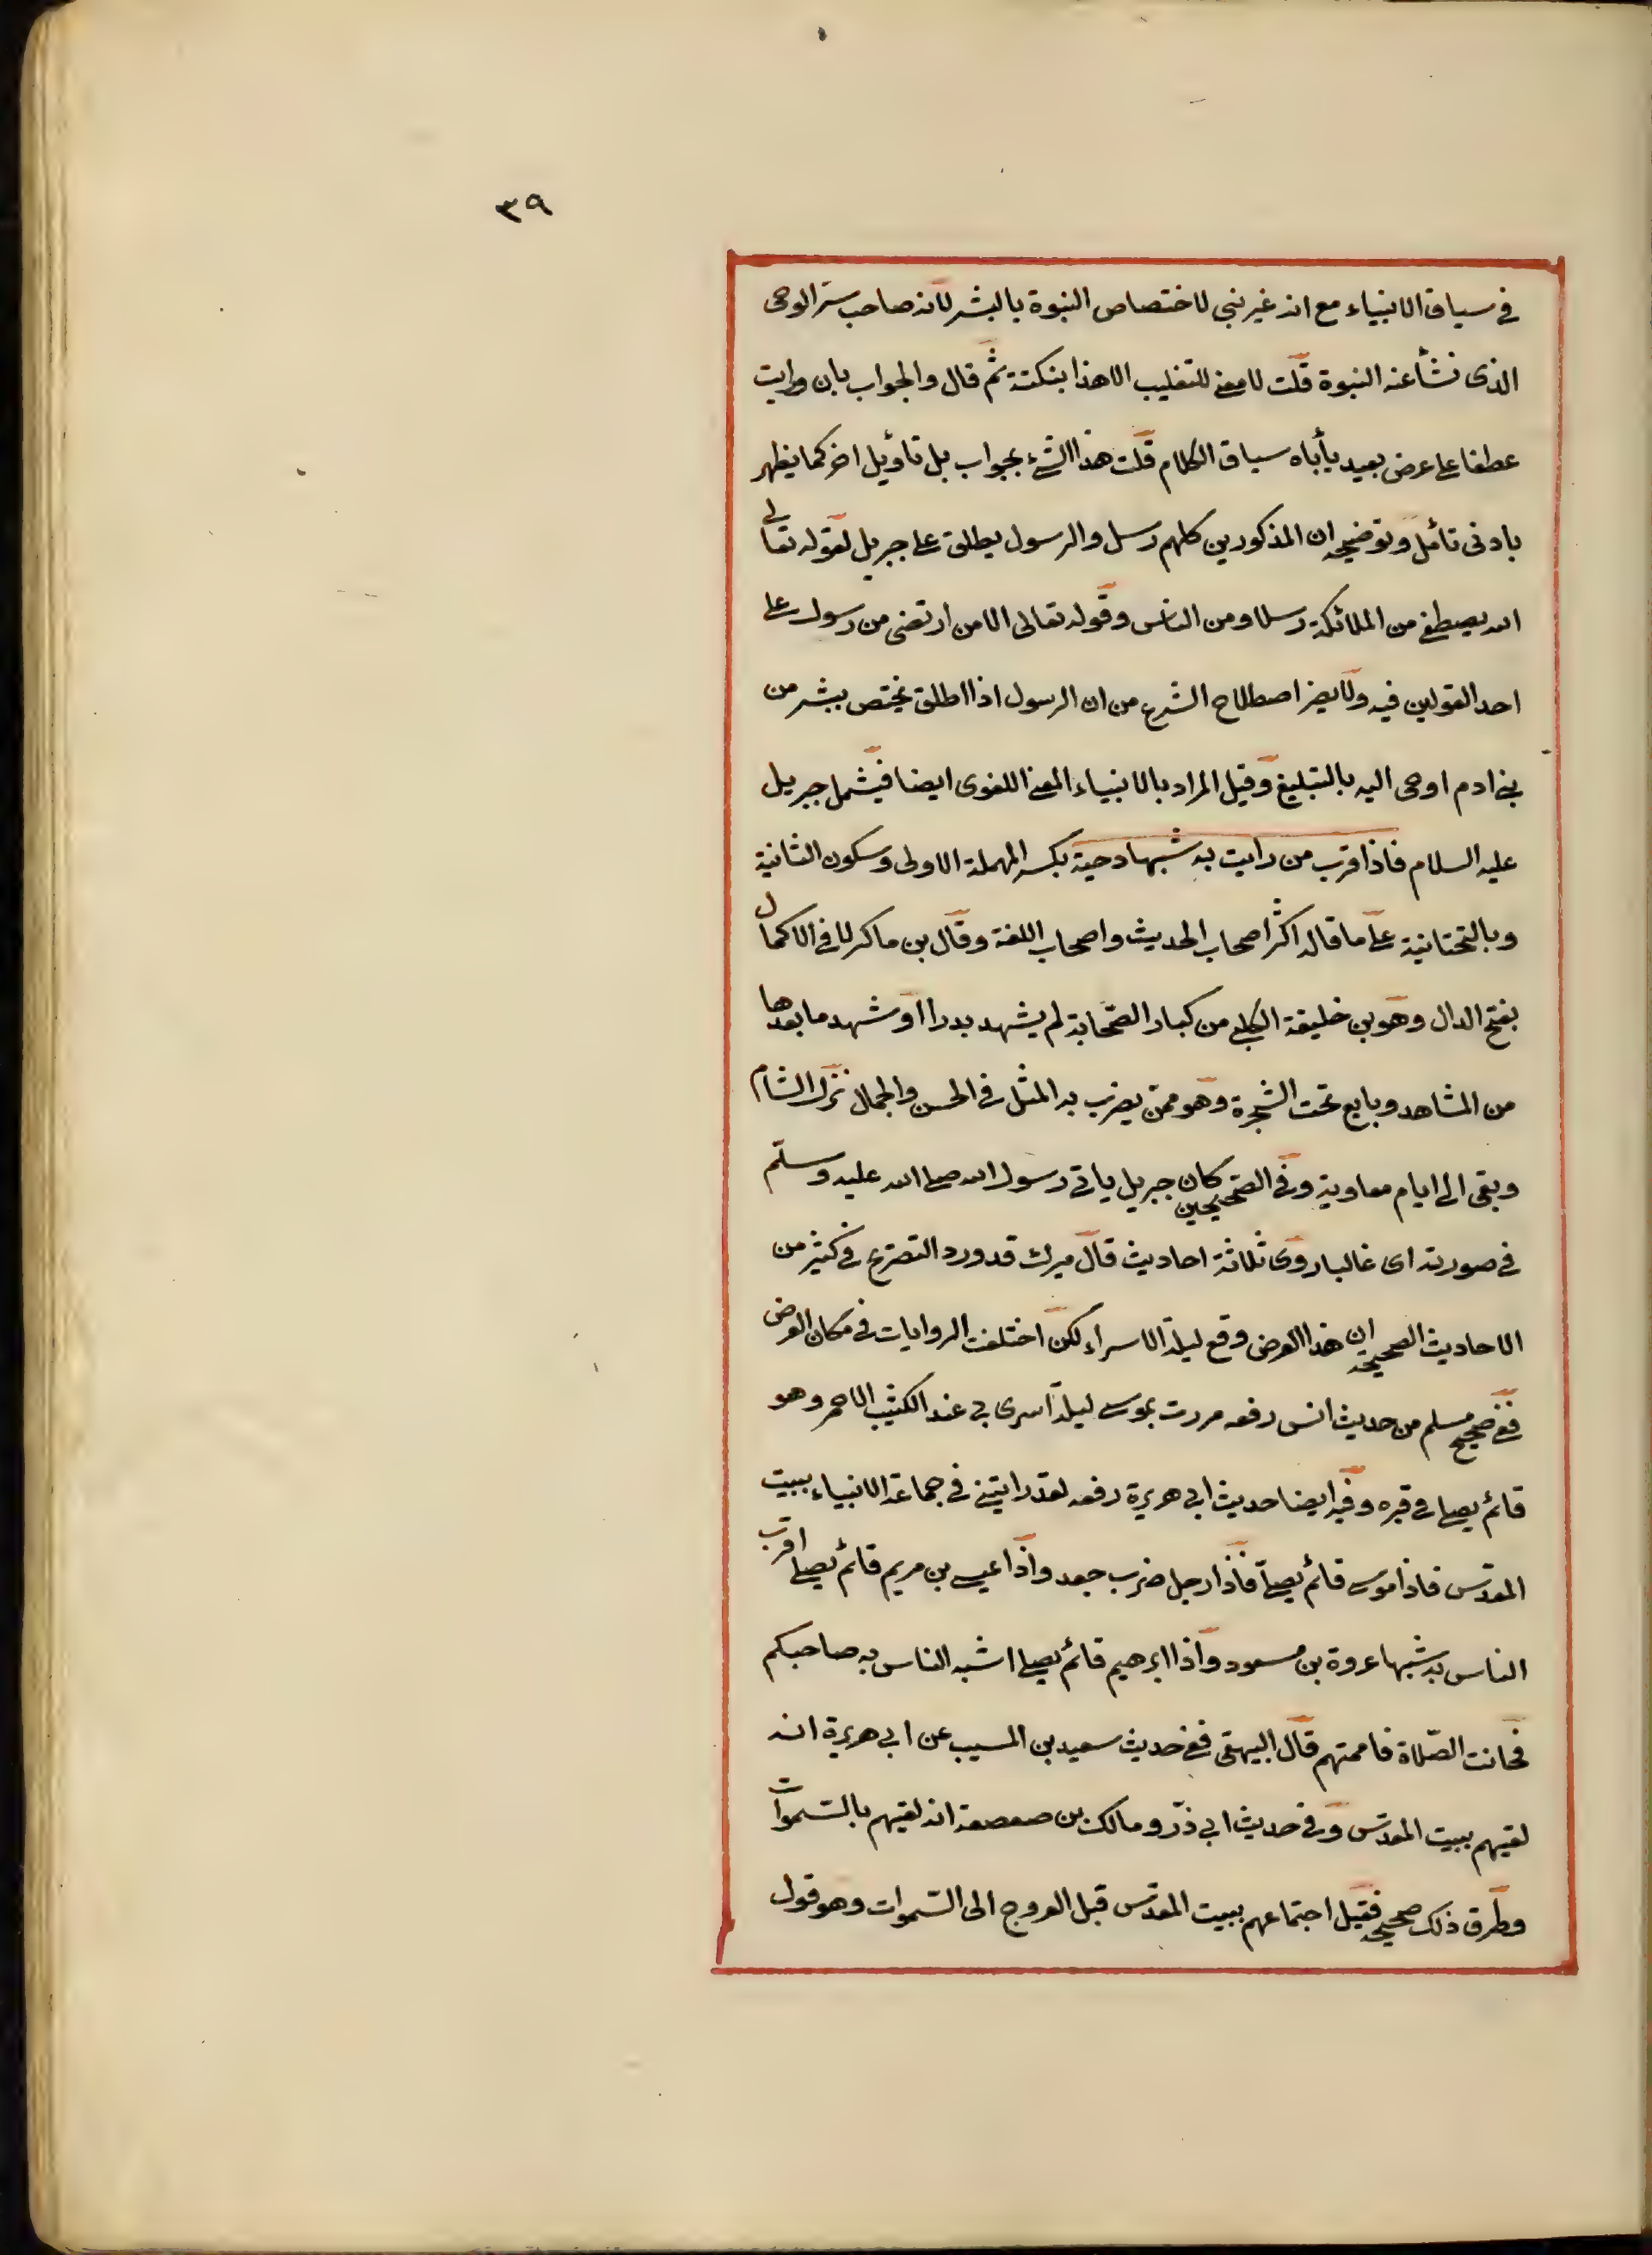 ٣٩
في سياق الانبياء مع انه غير نبي لاختصاص النبوة بالبشر لانه صاحب سر الوحى
الذى نشأ عنه النبوة قلت لا معنى للتغليب الا هذا بنكتة ثم قال والجواب بان ورايت
عطفا على عرض بعيد يأباه سياق الكلام قلت هذا الشئ بجواب بل تأويل اخر كما يظهر
بادنى تأمل وتوضيحه ان المذكورين كلهم رسل والرسول يطلق على جبريل لقوله تعالى
الله يصطفى من الملائكة رسلا ومن الناس وقوله تعالى الا من ارتضى من رسول على
احد القولين فيه ولا يضر اصطلاح الشرع من ان الرسول اذا اطلق يختص ببشر من
بنى ادم اوحى اليه بالتبليغ وقيل المراد بالانبياء المعنى اللغوى ايضا فيشمل جبريل
عليه السلام فاذا اقرب من رايت به شبها دحية بكسر المهملة الاولى وسكون الثانية
وبالتحتانية على ما قاله اكثر اصحاب الحديث واصحاب اللغة وقال بن ماكولا فى الاكمال
بفتح الدال وهو بن خليفة الكلبى من كبار الصحابة لم يشهد بدرا او شهد ما بعدها
من المشاهد وبايع تحت الشجرة وهو ممن يضرب به المثل فى الحسن والجمال نزل الشام
وبقى الى ايام معاوية وفى الصحيحين كان جبريل ياتى رسول الله صلى الله عليه وسلم
فى صورته اى غالبا روى ثلاثة احاديث قال ميرك قد ورد التصريح فى كثير من
الاحاديث الصحيحة ان هذا العرض وقع ليلة الاسراء لكن اختلفت الروايات فى مكان العرض
ففى صحيح مسلم من حديث انس رفعه مررت بموسى ليلة اسرى بى عند الكثيب الاحمر وهو
قائم يصلى فى قبره وفيه ايضا حديث ابى هريرة رفعه لقد رايتنى فى جماعة الانبياء ببيت
المقدس فاذا موسى قائم يصلى فاذا رجل ضرب جعد واذا عيسى بن مريم قائم يصلى اقرب
الناس به شبها عروة بن مسعود واذا ابرهيم قائم يصلى اشبه الناس به صاحبكم
فحانت الصلاة فاممتهم قال البيهقى ففى حديث سعيد بن المسيب عن ابى هريرة انه
لقيهم ببيت المقدس وفى حديث ابى ذر ومالك بن صعصعة انه لقيهم بالسموات
وطرق ذلك صحيحة فقيل اجتماعهم ببيت المقدس قبل العروج الى السموات وهو قول